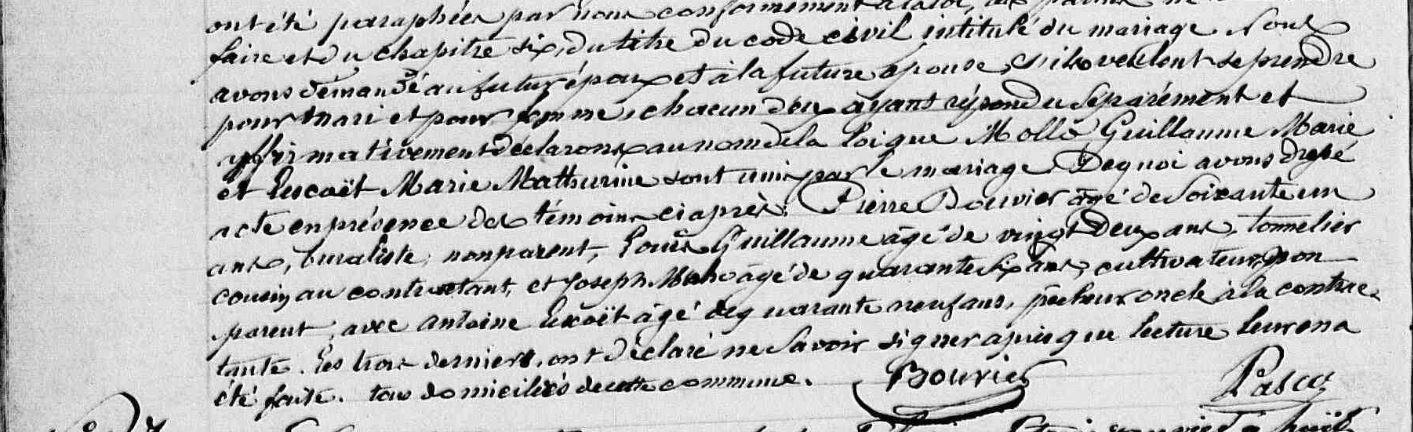 ont été paraphées par nous conformément à la loi,
faire et du chapitre six, du titre du code civil intitulé du mariage Nous
avons demandé au futur époux et à la future épouse, s'ils veulent se prendre
pour mari et pour femme, chacun d'eux ayant répondu séparément et
affirmativement déclarons au nom de la loi que Mollo Guillaume Marie
et Lucoët Marie Mathurine sont unis par le mariage. De quoi avons dressé
acte en présence des témoins ci après: Pierre Bouvier âgé de soixante un
ans, buraliste, non parent, Louis Guillaume âgé de vingt deux ans, tonnelier
cousin au contractant, et Joseph Maho âgé de quarante six ans, cultivateur, non
parent, avec Antoine Lucoët âgé de quarante neuf ans, pêcheur oncle à la contrac-
tante. Les trois derniers, ont déclaré ne savoir signer après que lecture leur en a
été faite. tous domiciliés de cette commune. Bouvier Pasco